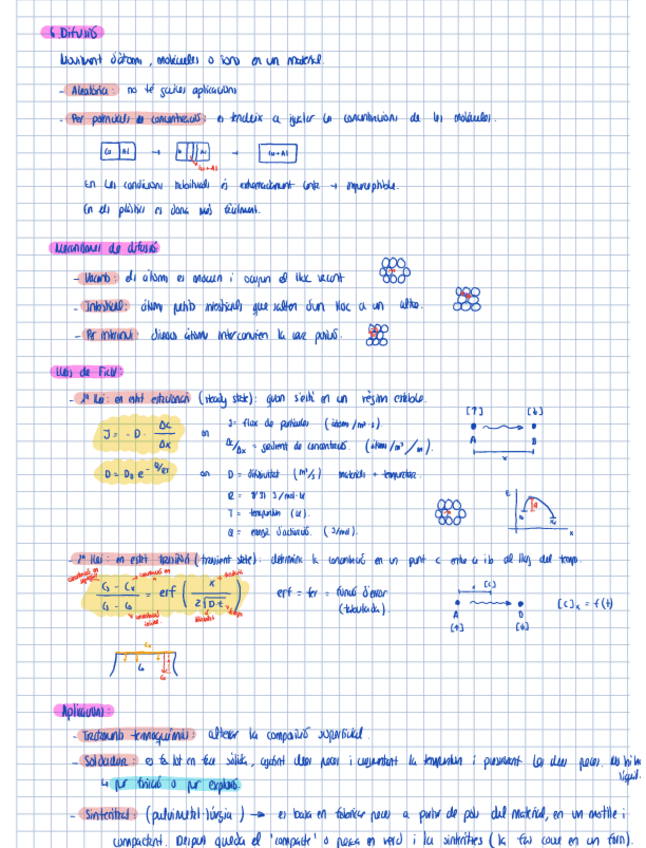 6. Difusió
Moviment d'àtoms, molècules o ions en un material.
- Aleatòria: no té gaires aplicacions
- Per potencials de concentració: es tendeix a igualar la concentracions de les molècules.
Cu Al → Cu Al → Cu+Al
Cu+Al
En les condicions habituals és extremadament lenta → imperceptible.
En els plàstics es dona més fàcilment.
Mecanismes de difusió
- Vacants: els àtoms es mouen i ocupen el lloc vacant
- Intersticial: àtoms petits intersticials que salten d'un lloc a un altre.
- Per intercanvi: diversos àtoms intercanvien la seva posició.
Lleis de Fick:
- 1ª llei: en estat estacionari (steady state): quan s'està en un règim estable.
J = - D · ΔC/Δx on J = flux de partícules (àtoms/m²·s).
ΔC/Δx = gradient de concentració (àtoms/m³/m).
[↑] [↓]
A B
x
D = D₀ e^(-Q/RT) on D = difusivitat (m²/s) materials + temperatura.
R = 8'31 J/mol·K
T = temperatura (K).
Q = energia d'activació (J/mol).
E
Q
x
- 2ª llei: en estat transitori (transient state): determina la concentració en un punt c entre a i b al llarg del temps.
Cs - Cx / Cs - C₀ = erf ( x / 2√D·t )
erf = fer = funció d'error
(tabulada)
x [c]
A B
[↑] [↓]
[c]x = f(t)
Cs
C₀
Aplicacions:
- Tractaments termoquímics: alterar la composició superficial.
- Soldadura: es fa tot en fase sòlida, ajuntant dues peces i augmentant la temperatura i pressionant les dues peces. No hi ha
líquid.
↳ per fricció o per explosió.
- Sinterització: (pulvimetal·lúrgia) → es basa en fabricar peces a partir de pols del material, en un motlle i
compactant. Després queda el 'compacte' o peça en verd i la sinteritzes (la fas coure en un forn).